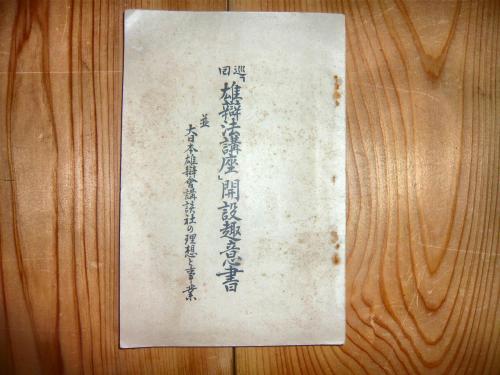 巡回「雄辯法講座」開設趣意書
並
大日本雄辯會講談社の理想と事業